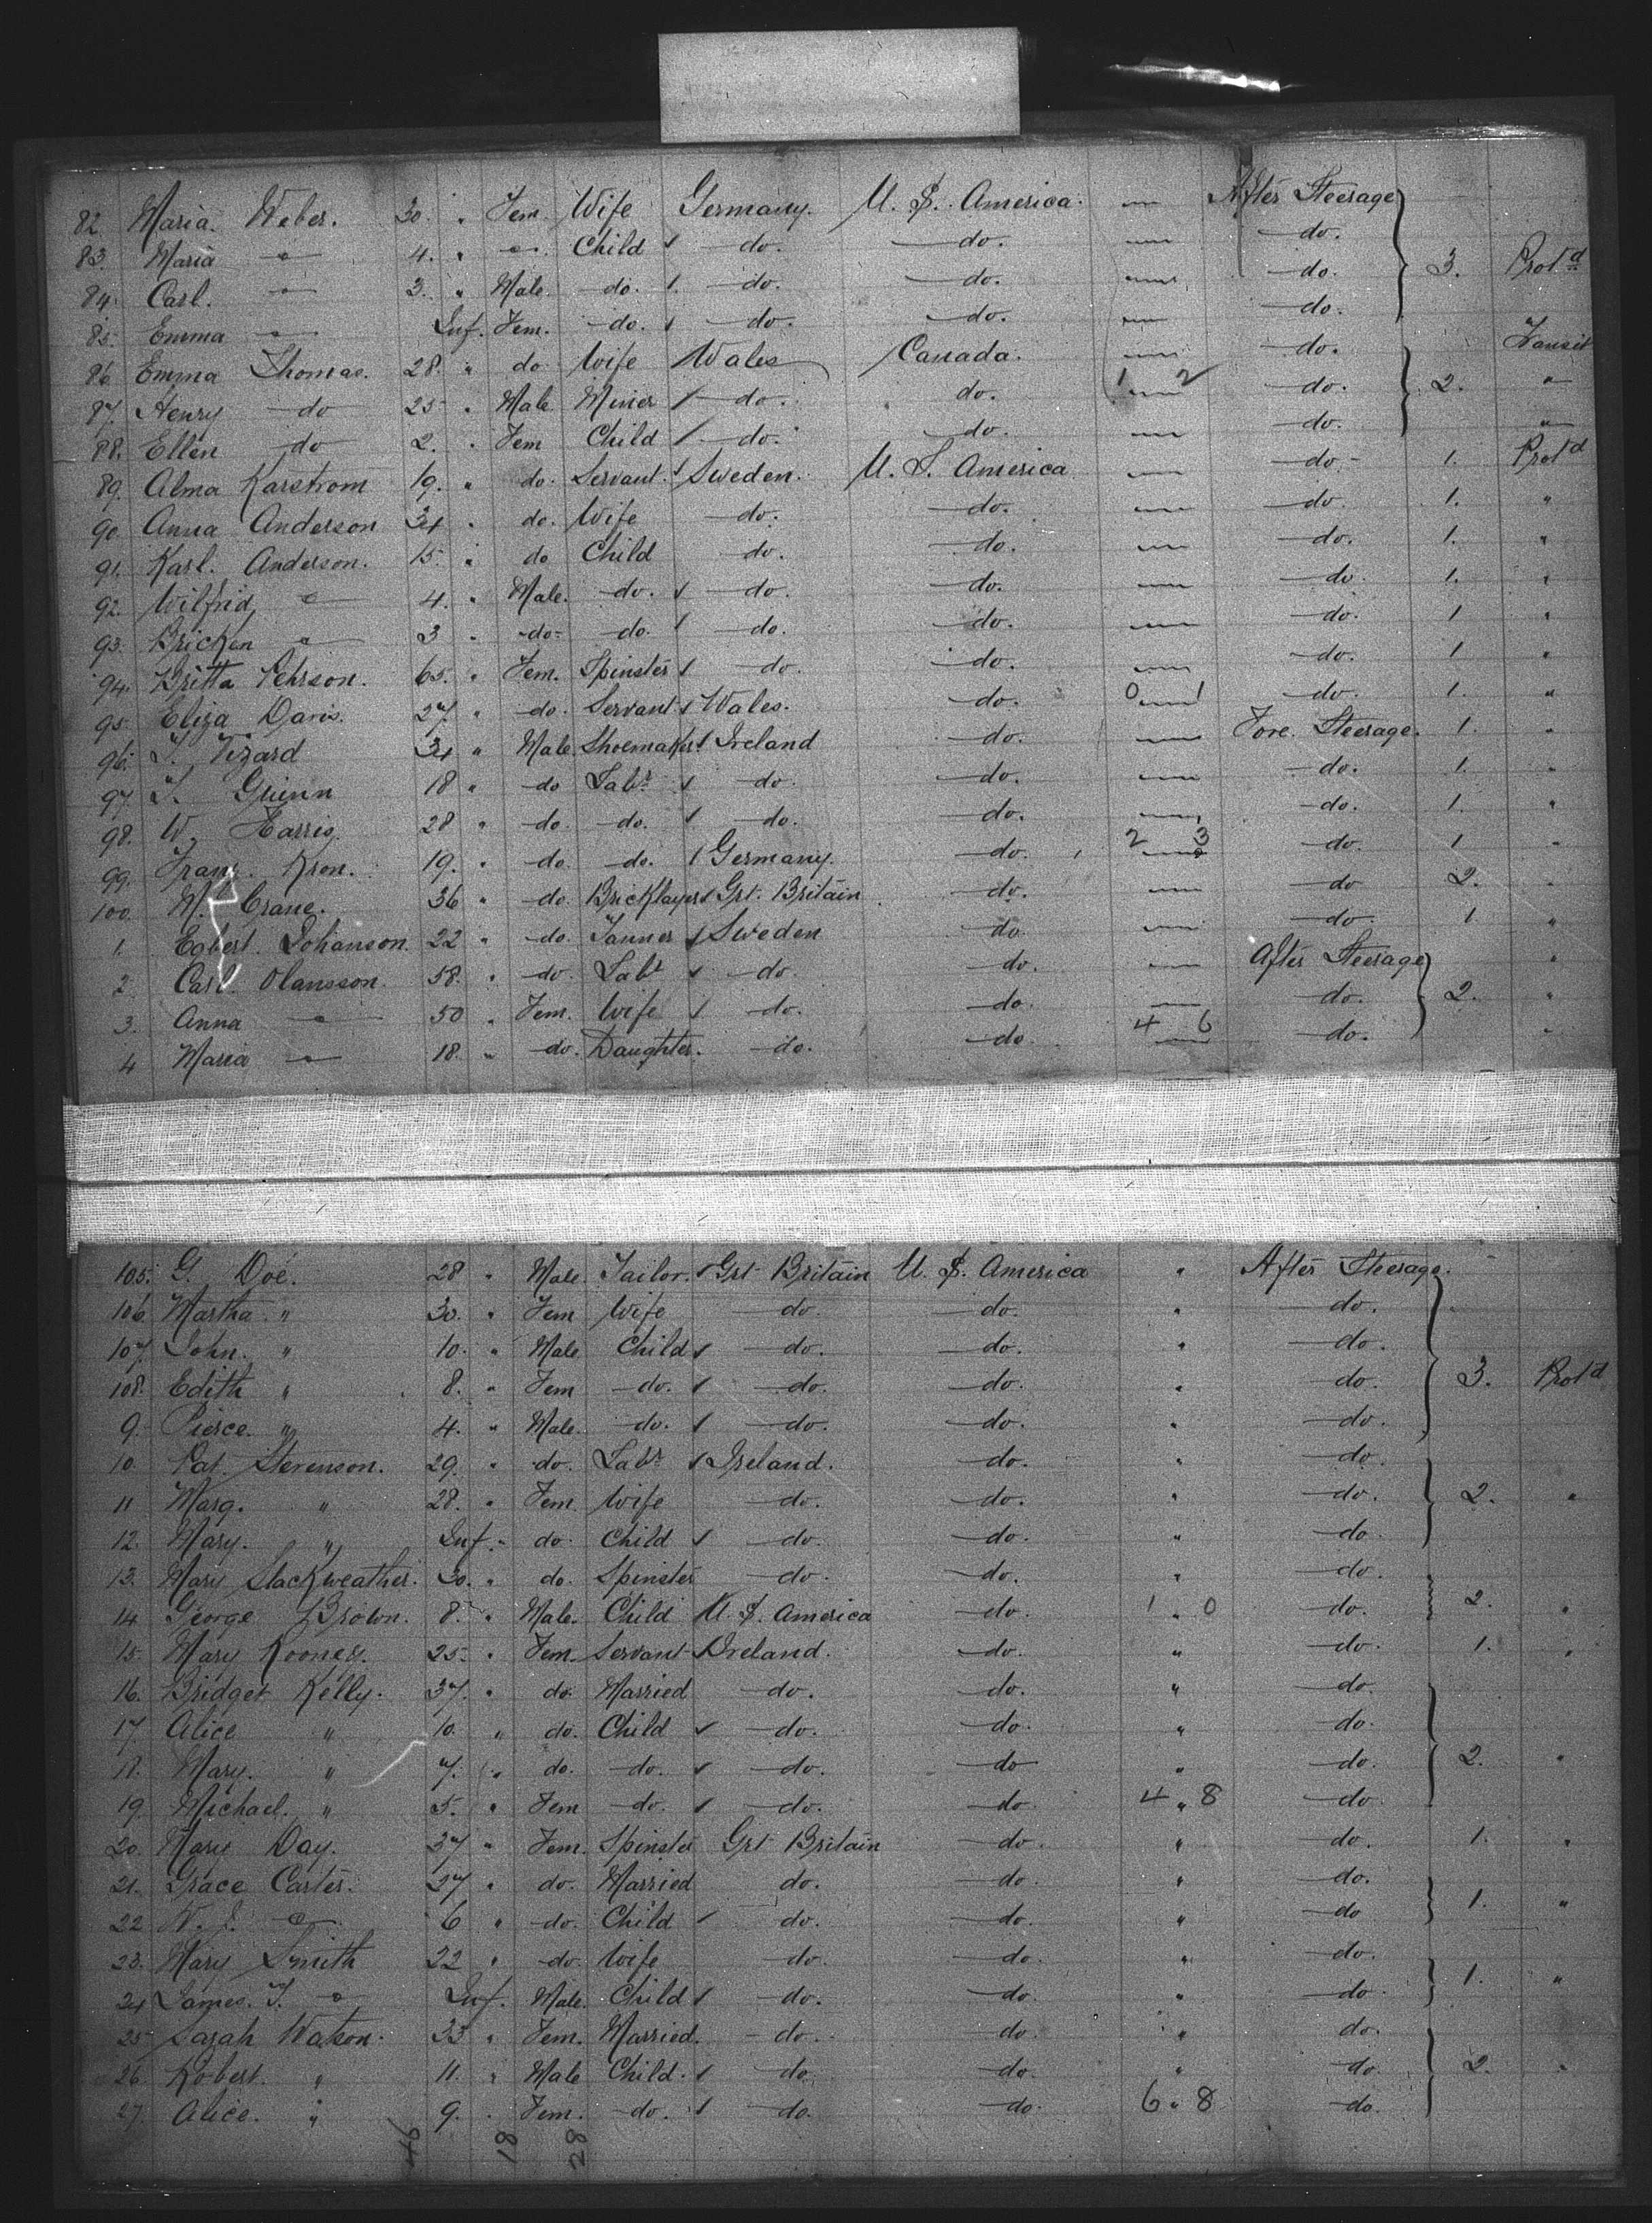 82. Maria Weber. 30. " Fem. Wife Germany. U. S. America. — After Steerage
83. Maria — 4. " " Child 1 do. do. — do.
84. Carl. — 3. " Male. do. 1. do. do. — do. 3. Prot'd
85. Emma — Inf. Fem. do. 1 do. do. — do.
86 Emma Thomas. 28. " do Wife Wales Canada. — do. Transit
87. Henry do 25 " Male Miner 1 do. do. 1 — 2 do. 2. "
88. Ellen do 2. " Fem Child 1 do. do. — do. "
89. Alma Karstrom 19. " do. Servant. 1 Sweden. U. S. America — do. 1. Prot'd
90 Anna Anderson 34 " do. Wife do. do. — do. 1. "
91. Karl. Anderson. 15. " do Child do. do. — do. 1. "
92. Wilfrid — 4. " Male. do. 1 do. do. — do. 1. "
93. Bricken — 3 " do. do. 1 do. do. — do. 1 "
94. Britta Pehrson. 65. " Fem. Spinster 1 do. do. — do. 1 "
95. Eliza Davis. 27. " do. Servant 1 Wales. do. 0 — 1 do. 1. "
96. T. Vizard 34 " Male Shoemaker 1 Ireland do. — Fore. Steerage. 1. "
97. T. Guinn 18 " do Labr 1 do. do. — do. 1. "
98. W. Harris. 28 " do. do. 1 do. do. — do. 1. "
99. Franz. Kron. 19. " do. do. 1 Germany. do. 2 — 3 do. 1 "
100. M. Crane. 36 " do. Bricklayer 1 Grt. Britain do. — do 2. "
1. Egbert. Johanson. 22 " do. Tanner 1 Sweden do. — do. 1 "
2. Carl. Olansson. 58. " do. Labr 1 do. do. — After Steerage "
3. Anna — 50 " Fem. Wife 1 do. do. — do. 2. "
4 Maria — 18. " do. Daughter. do. do 4 — 6 do. "
105. G. Doe. 28 " Male. Tailor. 1 Grt Britain U. S. America " After Steerage.
106. Martha. " 30. " Fem Wife do. do. " do.
107. John. " 10. " Male Child 1 do. do. " do.
108. Edith " 8. " Fem do. 1 do. do. " do. 3. Prot'd
9. Pierce. " 4. " Male. do. 1 do. do. " do.
10. Pat. Stevenson. 29. " do. Labr 1 Ireland. do. " do.
11 Marg. " 28. " Fem. Wife do. do. " do. 2. "
12. Mary. " Inf. " do. Child 1 do. do. " do
13. Mary Stackweather. 30. " do. Spinster do. do. " do.
14 George Brown. 8. " Male. Child U. S. America do. 1 " 0 do. 2. "
15. Mary Rooney. 25. " Fem. Servant Ireland. do. " do. 1. "
16. Bridget Kelly. 37. " do. Married do. do. " do.
17. Alice " 10. " do. Child 1 do. do. " do.
18. Mary. " 7. " do. do. 1 do. do " do. 2. "
19. Michael. " 5. " Fem do. 1 do. do. 4 " 8 do.
20. Mary Day. 37 " Fem. Spinster Grt Britain do. " do. 1. "
21. Grace Carter. 27 " do. Married do. do. " do.
22 W. J. — 6 " do. Child 1 do. do. " do 1. "
23. Mary Smith 22 " do. Wife do. do. " do.
24 James. T. — Inf. Male. Child 1 do. do. " do. 1. "
25 Sarah Watson. 33 " Fem. Married. do. do. " do.
26. Robert. " 11. " Male Child. 1 do. do. " do. 2. "
27. Alice. " 9. " Fem. do. 1 do. do. 6 " 8 do.
46 18 28